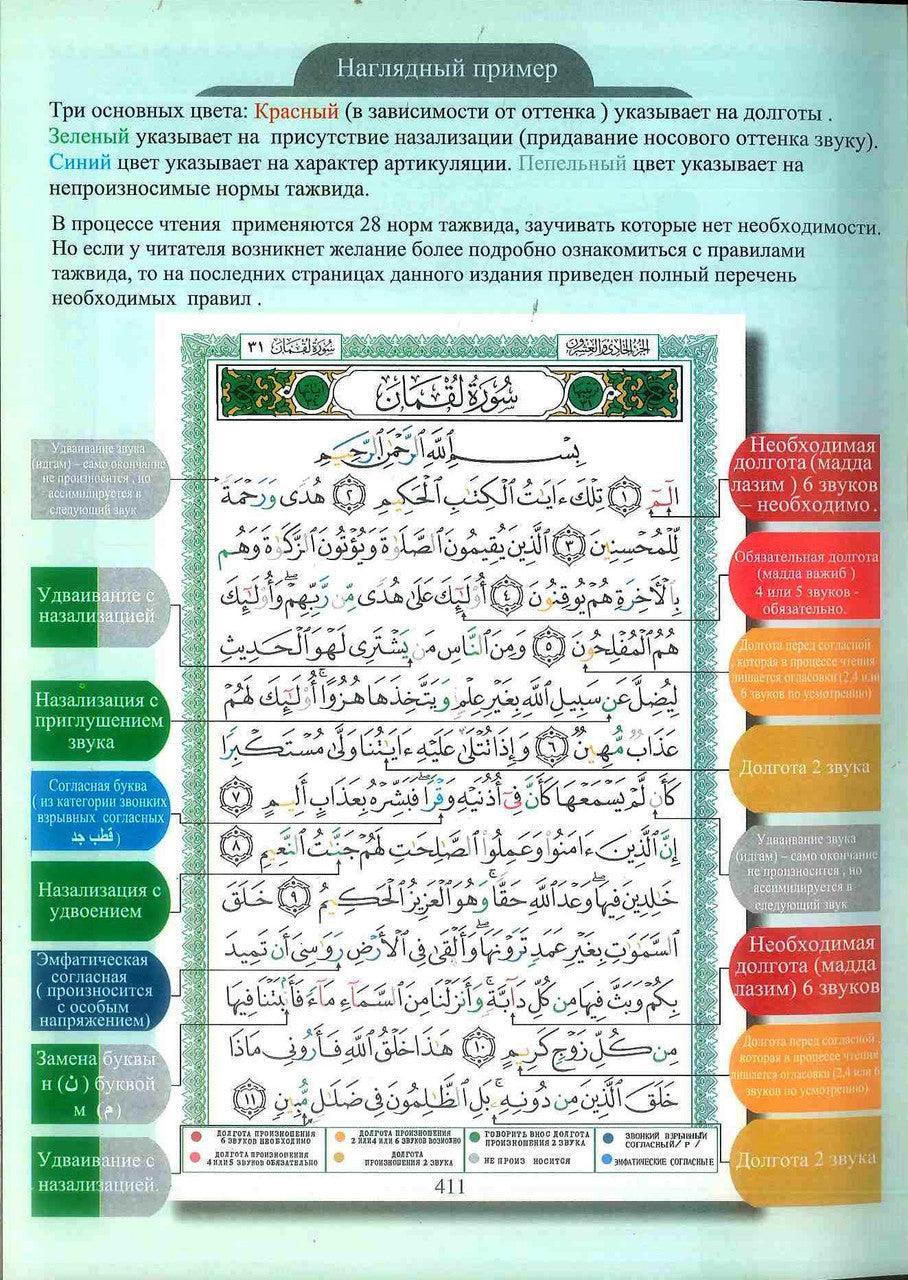 Наглядный пример
Три основных цвета: Красный (в зависимости от оттенка ) указывает на долготы .
Зеленый указывает на присутствие назализации (придавание носового оттенка звуку).
Синий цвет указывает на характер артикуляции. Пепельный цвет указывает на
непроизносимые нормы тажвида.
В процессе чтения применяются 28 норм тажвида, заучивать которые нет необходимости.
Но если у читателя возникнет желание более подробно ознакомиться с правилами
тажвида, то на последних страницах данного издания приведен полный перечень
необходимых правил .
سُورَةُ لُقْمَان ٣١
الجزء الحادي والعشرون
سُورَةُ لُقْمَان
بِسْمِ ٱللَّهِ ٱلرَّحْمَٰنِ ٱلرَّحِيمِ
الٓمٓ ١ تِلْكَ ءَايَٰتُ ٱلْكِتَٰبِ ٱلْحَكِيمِ ٢ هُدًى وَرَحْمَةً
لِّلْمُحْسِنِينَ ٣ ٱلَّذِينَ يُقِيمُونَ ٱلصَّلَوٰةَ وَيُؤْتُونَ ٱلزَّكَوٰةَ وَهُم
بِٱلْءَاخِرَةِ هُمْ يُوقِنُونَ ٤ أُو۟لَٰٓئِكَ عَلَىٰ هُدًى مِّن رَّبِّهِمْ ۖ وَأُو۟لَٰٓئِكَ
هُمُ ٱلْمُفْلِحُونَ ٥ وَمِنَ ٱلنَّاسِ مَن يَشْتَرِى لَهْوَ ٱلْحَدِيثِ
لِيُضِلَّ عَن سَبِيلِ ٱللَّهِ بِغَيْرِ عِلْمٍ وَيَتَّخِذَهَا هُزُوًا ۚ أُو۟لَٰٓئِكَ لَهُمْ
عَذَابٌ مُّهِينٌ ٦ وَإِذَا تُتْلَىٰ عَلَيْهِ ءَايَٰتُنَا وَلَّىٰ مُسْتَكْبِرًا
كَأَن لَّمْ يَسْمَعْهَا كَأَنَّ فِىٓ أُذُنَيْهِ وَقْرًا ۖ فَبَشِّرْهُ بِعَذَابٍ أَلِيمٍ ٧
إِنَّ ٱلَّذِينَ ءَامَنُوا۟ وَعَمِلُوا۟ ٱلصَّٰلِحَٰتِ لَهُمْ جَنَّٰتُ ٱلنَّعِيمِ ٨
خَٰلِدِينَ فِيهَا ۖ وَعْدَ ٱللَّهِ حَقًّا ۚ وَهُوَ ٱلْعَزِيزُ ٱلْحَكِيمُ ٩ خَلَقَ
ٱلسَّمَٰوَٰتِ بِغَيْرِ عَمَدٍ تَرَوْنَهَا ۖ وَأَلْقَىٰ فِى ٱلْأَرْضِ رَوَٰسِىَ أَن تَمِيدَ
بِكُمْ وَبَثَّ فِيهَا مِن كُلِّ دَآبَّةٍ ۚ وَأَنزَلْنَا مِنَ ٱلسَّمَآءِ مَآءً فَأَنۢبَتْنَا فِيهَا
مِن كُلِّ زَوْجٍ كَرِيمٍ ١٠ هَٰذَا خَلْقُ ٱللَّهِ فَأَرُونِى مَاذَا
خَلَقَ ٱلَّذِينَ مِن دُونِهِۦ ۚ بَلِ ٱلظَّٰلِمُونَ فِى ضَلَٰلٍ مُّبِينٍ ١١
Удваивание звука
(идгам) – само окончание
не произносится , но
ассимилируется в
следующий звук
Удваивание с
назализацией
Назализация с
приглушением
звука
Согласная буква
( из категории звонких
взрывных согласных
قطب جد )
Назализация с
удвоением
Эмфатическая
согласная
( произносится
с особым
напряжением)
Замена буквы
н (ن) буквой
м (م)
Удваивание с
назализацией.
Необходимая
долгота (мадда
лазим ) 6 звуков
– необходимо .
Обязательная долгота
(мадда важиб )
4 или 5 звуков -
обязательно.
Долгота перед согласной
которая в процессе чтения
лишается огласовки (2,4 или
6 звуков по усмотрению)
Долгота 2 звука
Удваивание звука
(идгам) – само окончание
не произносится , но
ассимилируется в
следующий звук
Необходимая
долгота (мадда
лазим) 6 звуков
Долгота перед согласной ,
которая в процессе чтения
лишается огласовки (2,4 или 6
звуков по усмотрению)
Долгота 2 звука
ДОЛГОТА ПРОИЗНОШЕНИЯ
6 ЗВУКОВ НЕОБХОДИМО
ДОЛГОТА ПРОИЗНОШЕНИЯ
4 ИЛИ 5 ЗВУКОВ ОБЯЗАТЕЛЬНО
ДОЛГОТА ПРОИЗНОШЕНИЯ
2 ИЛИ 4 ИЛИ 6 ЗВУКОВ ВОЗМОЖНО
ДОЛГОТА
ПРОИЗНОШЕНИЯ 2 ЗВУКА
ГОВОРИТЬ ВНОС ДОЛГОТА
ПРОИЗНОШЕНИЯ 2 ЗВУКА
НЕ ПРОИЗ НОСИТСЯ
ЗВОНКИЙ ВЗРЫВНЫЙ
СОГЛАСНЫЙ / Р /
ЭМФАТИЧЕСКИЕ СОГЛАСНЫЕ
411